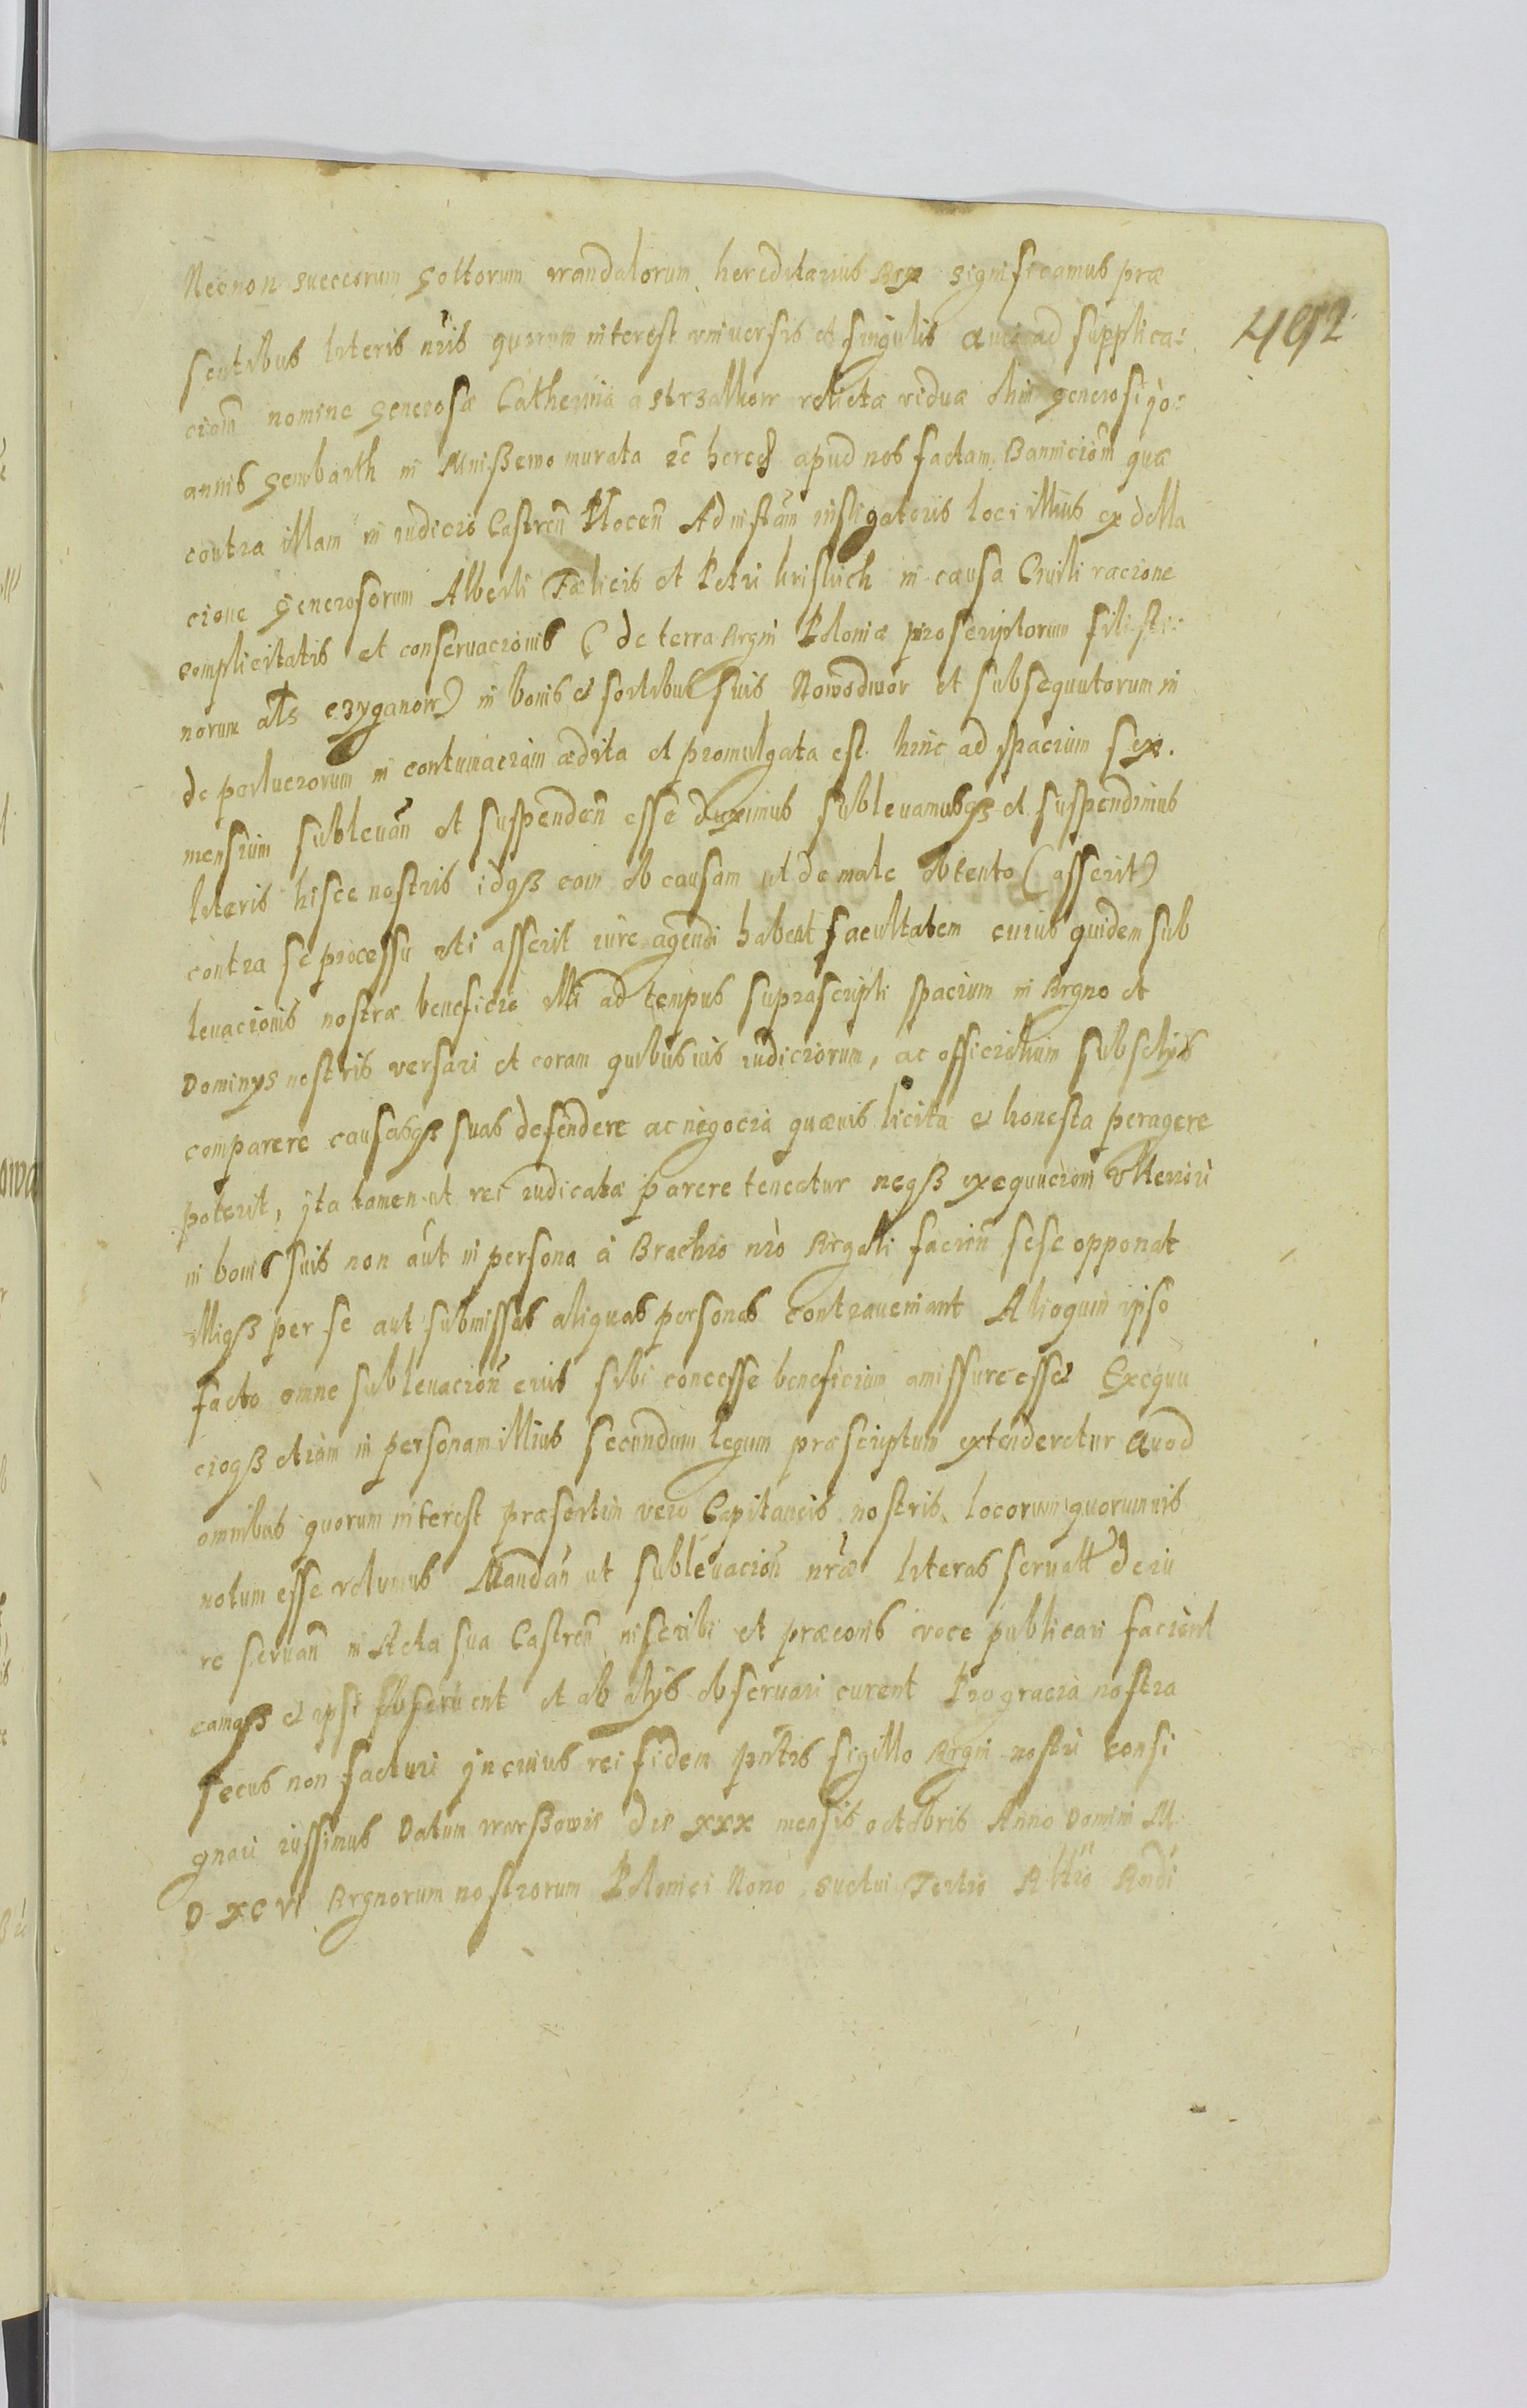 Necnon suecorum gottorum wandalorum hereditarius Rex significamus præ
sentibus literis nr̃is quorum interest vniuersis et singulis Quia ad supplica:
ciom̃ nomine generosæ Catherina a strzalkow relictæ viduæ olim generosi Jo:
annis gembarth in Kniszewo murata ec̃ hered apud nos factam Banniciom̃ quæ
contra illam in iudicio Castren̄ Plocen̄ Ad nistām instigatoris loci illius ex della
cione generosorum Alberti Fælicis et Petri in causa Ciuili racione
complicitatis et conseruacionis (de terra Regni Poloniæ proscriptorum
norum alš czyganow) in bonis et sortibus suis Nowodwor et subsequutorum in
de perlucrorum in contumaciam ædita et promulgata est hinc ad spacium sex.
mensium subleuan̄ et suspenden̄ esse duximus subleuamusqß et suspendimus
literis hisce nostris idqß eam ob causam ut de male obtento (asserit)
contra se processu uti asserit iure agendi habeat facultatem cuius quidem sub
leuacionis nostræ beneficio illi ad tempus suprascripti spacium in Regno et
Dominys nostris versari et coram quibusuis iudiciorum, ac officiorum subselys
comparere causasqß suas defendere ac negocia quæuis licita et honesta peragere
poterit, yta tamen ut rei iudicatæ parere teneatur neqß exequucioni vlteriori
in bonis suis non aut in persona a Brachio nr̃o Regali facien̄ sese opponat
illiqß per se aut submissas aliquas personas contraueniant Alioquin ipso
facto omne subleuacion̄ eius sibi concesse beneficium amissure esset Exequu
cioqß etiam in personam illius secundum legum præscriptum extenderetur Quod
omnibus quorum interest præsertim vero Capitaneis nostris locorum quorumuis
notum esse volumus Mandan̄ ut subleuacion̄ nr̃æ literas de iu
re seruan̄ in Acta sua Castren̄ inscribi et præconis voce publicari facient
eamqß et ipsi obseruent et ab alys obseruari curent Pro gracia nostra
secus non facturi yn cuius rei fidem pñtes sigillo Regni nostri consi
gnari iussimus Datum warßowie die xxx mensis octobris Anno Domini M
D XC VI Regnorum nostrorum Polonici Nono, suetici Tertio
492